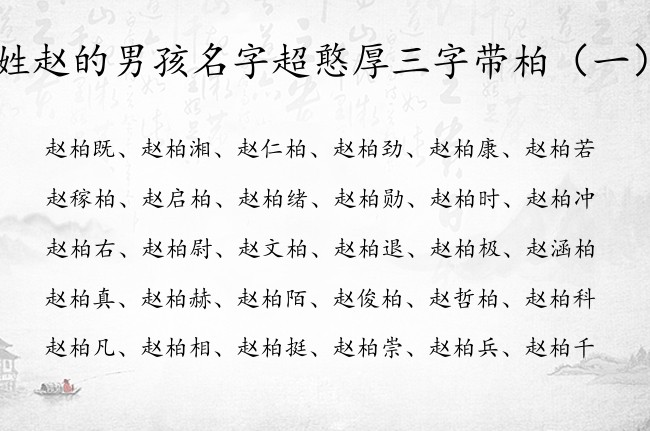 姓赵的男孩名字超憨厚三字带柏（一）
赵柏既、赵柏湘、赵仁柏、赵柏劲、赵柏康、赵柏若
赵稼柏、赵启柏、赵柏绪、赵柏勋、赵柏时、赵柏冲
赵柏右、赵柏尉、赵文柏、赵柏退、赵柏极、赵涵柏
赵柏真、赵柏赫、赵柏陌、赵俊柏、赵哲柏、赵柏科
赵柏凡、赵柏相、赵柏挺、赵柏崇、赵柏兵、赵柏千